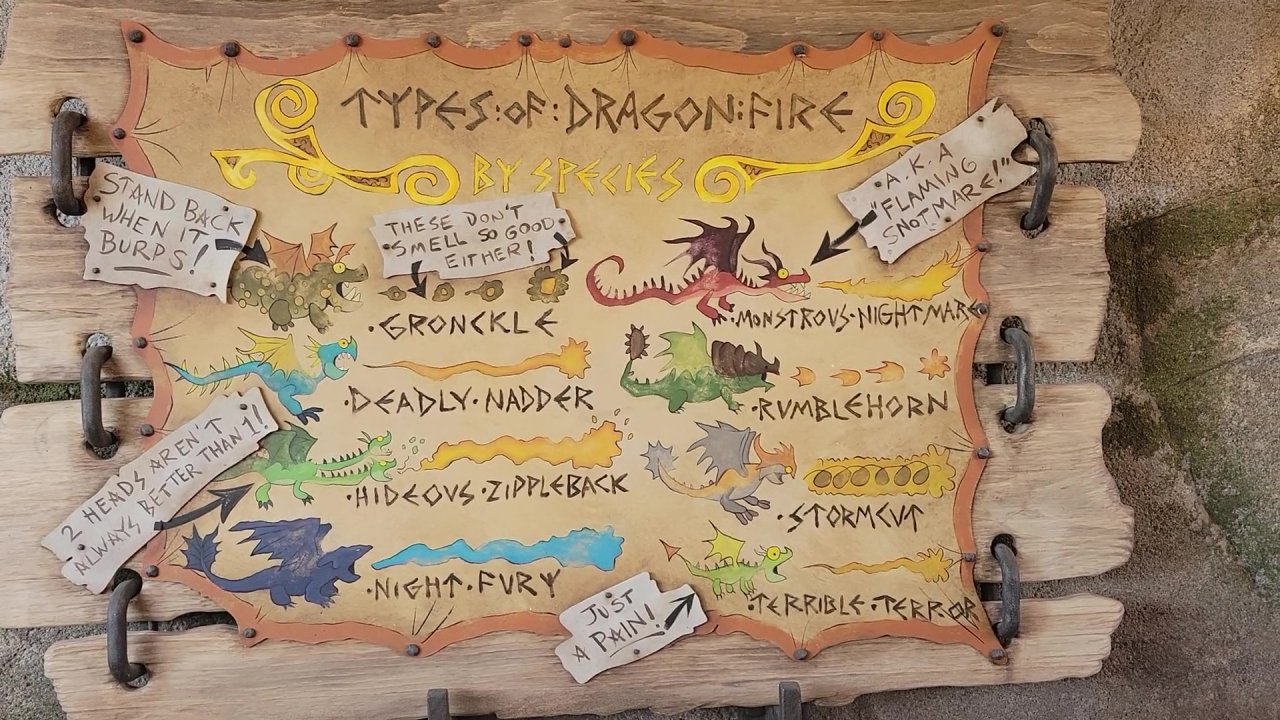 TYPES:OF:DRAGON:FIRE
BY SPECIES
STAND BACK
WHEN IT
BURPS!
THESE DON'T
SMELL SO GOOD
EITHER!
A.K.A
"FLAMING
SNOTMARE!"
·GRONCKLE
·MONSTROUS·NIGHTMARE
·DEADLY·NADDER
·RUMBLEHORN
2 HEADS AREN'T
ALWAYS BETTER THAN 1!
·HIDEOUS·ZIPPLEBACK
·STORMCUT
·NIGHT·FURY
·TERRIBLE·TERROR
JUST
A PAIN!